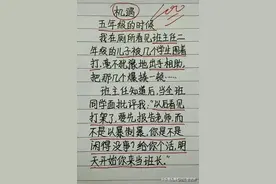 机遇
五年级的时候
我在厕所看见班主任二
年级的儿子被几个学生围着
打,毫不犹豫地出手相助,
把那几个爆揍一顿……
班主任知道后,当全班
同学面批评我:“以后看见
打架了,要先报告老师,而
不是以暴制暴,你是不是
闲得没事?给你个活,明
天开始你来当班长。”